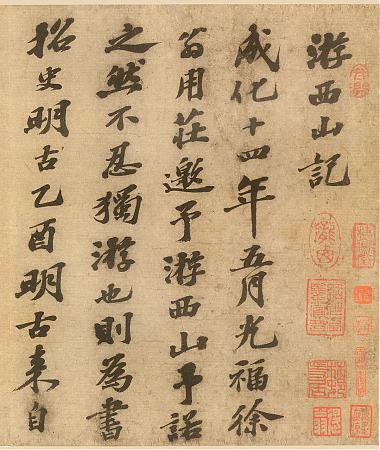 游西山記
成化十四年五月光福徐
翁用莊邀予游西山予諾
之然不忍獨游也則為書
招史明古乙酉明古來自